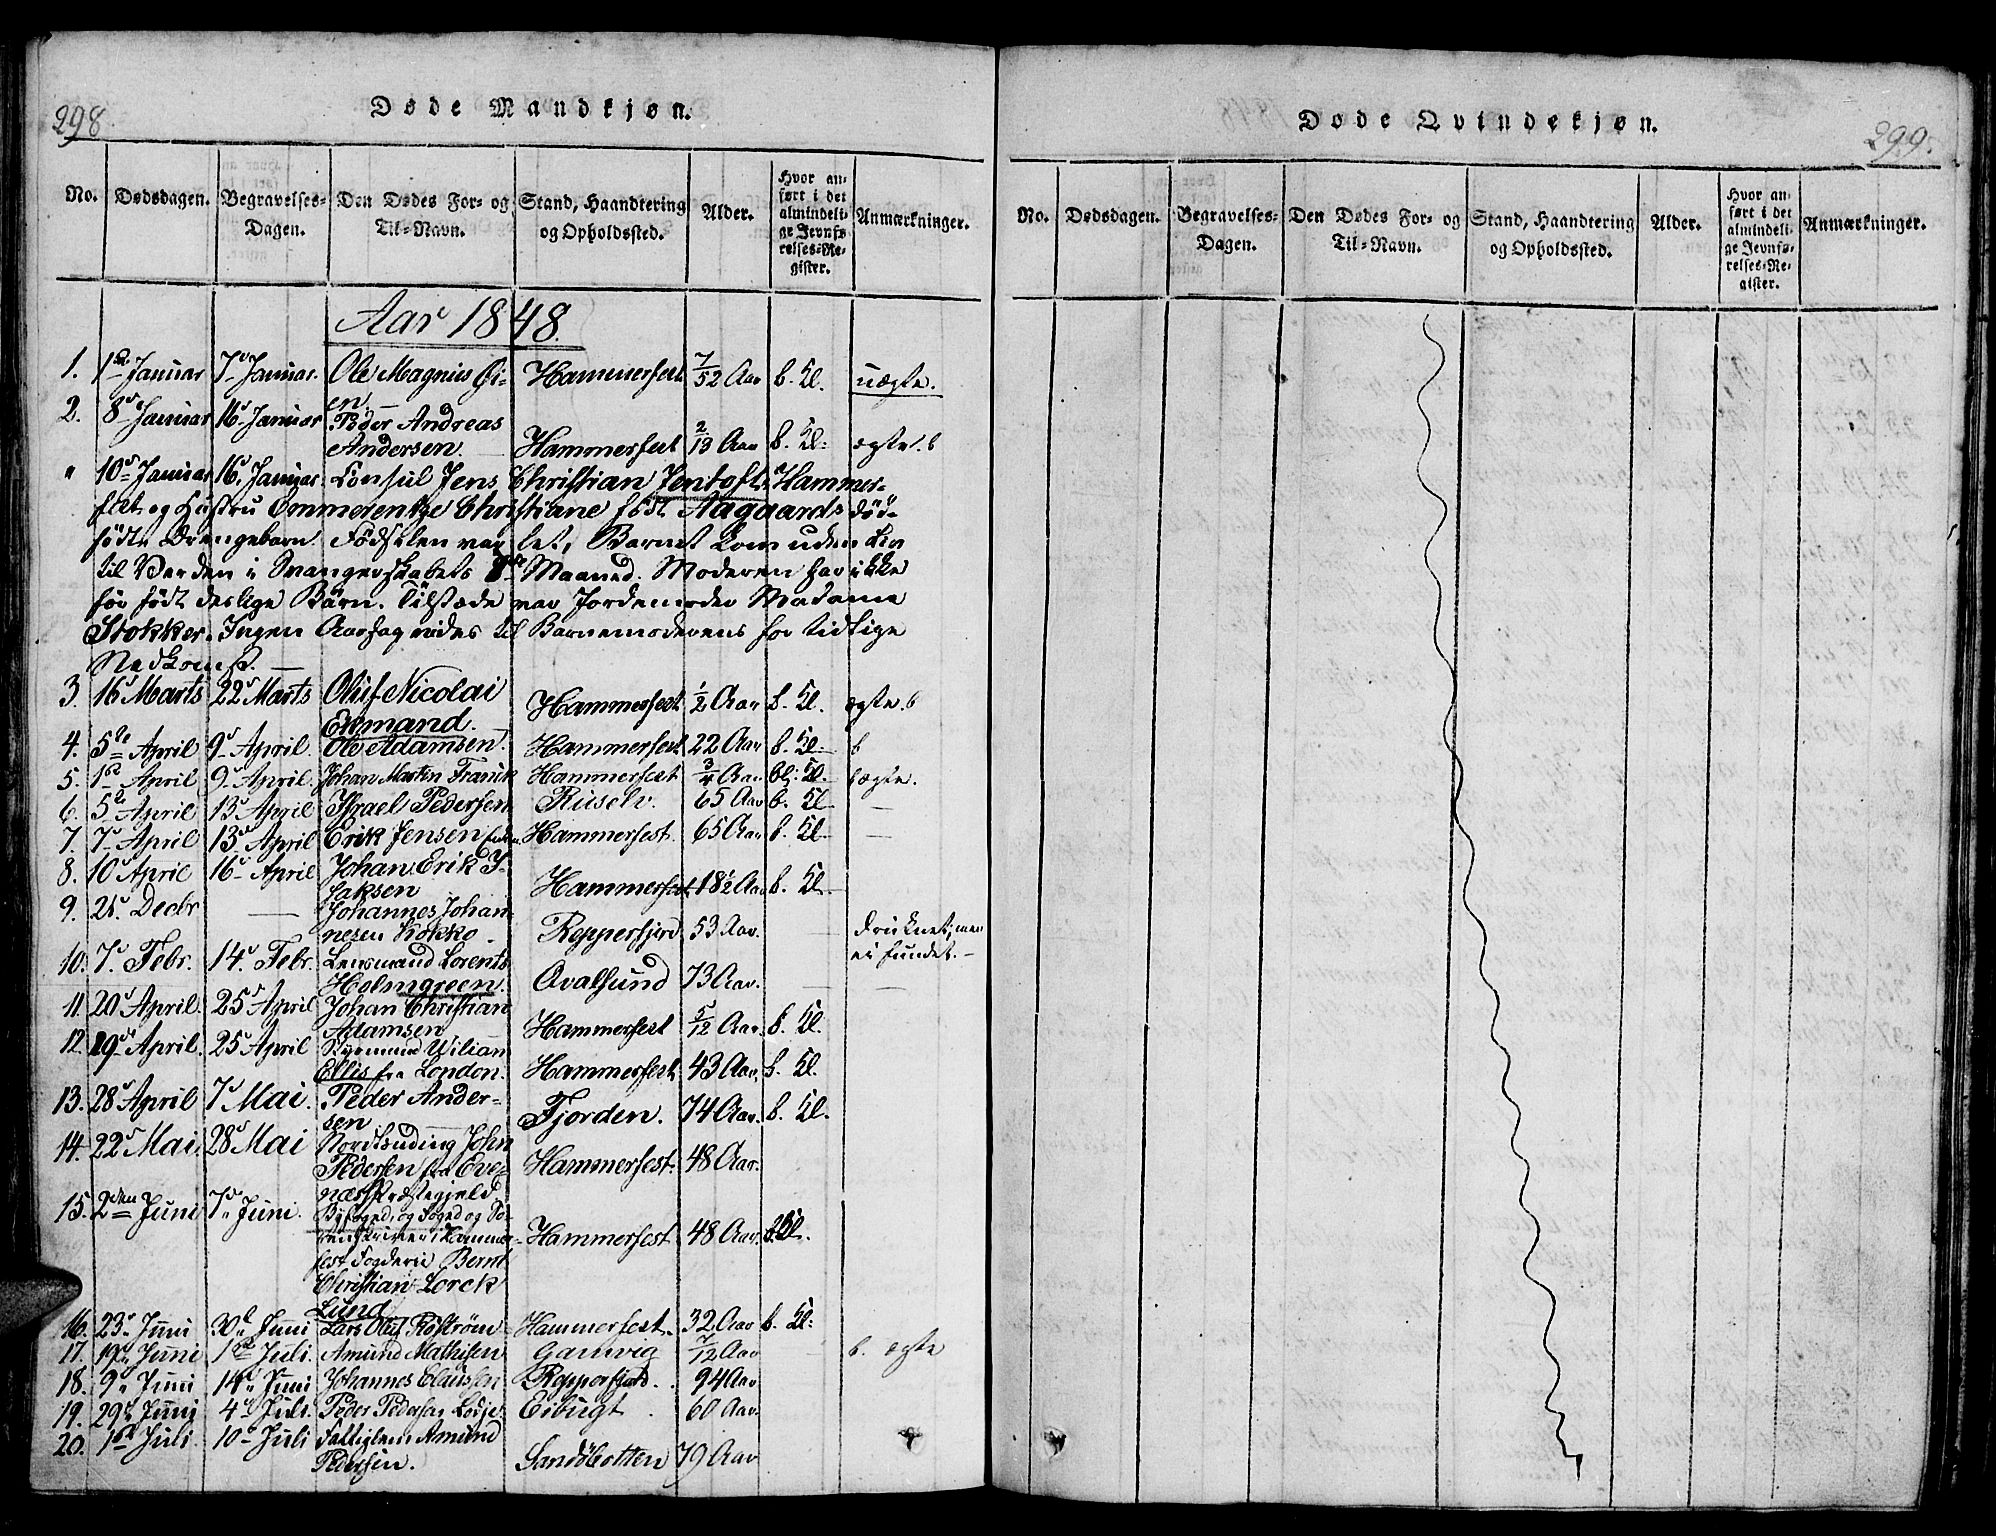 298.
Døde Mandkjøn.
No. Dødsdagen. Begravelses-Dagen. Den Dødes For- og Til-Navn. Stand, Haandtering og Opholdssted. Alder. Hvor anført i det almindelige Jevnførelses-Register. Anmærkninger.
Aar 1848.
1. 1ste Januar 7d Januar. Ole Magnus Øi- Hammerfest 7/52 Aar uægte.
en.
2. 8d Januar 16d Januar Peder Andreas
Andersen. Hammerfest 2/13 Aar ægte.
" 10d Januar 16d Januar. Consul Jens Christian Jentoft, Hammer-
fest og Hustru Emmerentze Christiane født Aagaards död-
födte Drengebarn. Födselen var let, Barnet kom uden Liv
til Verden i Svangerskabets 8de Maaned. Moderen har ikke
för födt deslige Börn. Tilstæde var Jordemoder Madame
Stokker. Ingen Aarsag vides til Barnemoderens for tidlige
Nedkomst.
3. 16d Marts 22d Marts Oluf Nicolai
Ekmand. Hammerfest 1/2 Aar ægte.
4. 5te April 9d April. Ole Adamsen. Hammerfest 22 Aar
5. 1ste April 9d April. Johan Martin Franck Hammerfest 3/4 Aar ægte.
6. 5te April 13d April Israel Pedersen Rüselv. 65 Aar
7. 7d April 13d April Erik Jensen Hammerfest. 65 Aar
8. 10d April 16d April Johan Erik I-
saksen Hammerfest 18½ Aar
9. 21d Decbr — Johannes Johan-
nesen Kokko Repperfjord 53 Aar. druknet; men
ei fundet.
10. 7d Febr. 14d Febr. Lensmand Lorents
Holmgreen. Qvalsund 73 Aar.
11. 20d April. 25d April Johan Christian
Adamsen Hammerfest 5/12 Aar
12. 19d April. 25d April Styrmand Wiliam
Ellis fra London. Hammerfest 43 Aar
13. 28d April 7d Mai. Peder Ander-
sen Fjorden. 74 Aar.
14. 22d Mai 28d Mai Nordlænding John
Pedersen fra Eve-
næs Præstegjeld. Hammerfest. 48 Aar.
15. 2den Juni 7d Juni. Byfoged, og Foged og So-
renskriver i Hammer-
fest Fogderie Bernt
Christian Lorck
Lund Hammerfest 48 Aar
16. 23d Juni 30d Juni Lars Oluf Röström Hammerfest. 32 Aar
17. 19d Juni 1ste Juli. Amund Mathisen Gamvig 7/12 Aar ægte
18. 9d Juni 14d Juni Johannes Claussen Repperfjord. 94 Aar
19. 29d Junij 4d Juli. Peder Pedersen Eibugt 60 Aar.
20. 1ste Juli. 10d Juli Fattiglem Amund
Pedersen. Sandöbotten 79 Aar
299.
Døde Qvindekjøn.
No. Dødsdagen. Begravelses-Dagen. Den Dødes For- og Til-Navn. Stand, Haandtering og Opholdssted. Alder. Hvor anført i det almindelige Jevnførelses-Register. Anmærkninger.